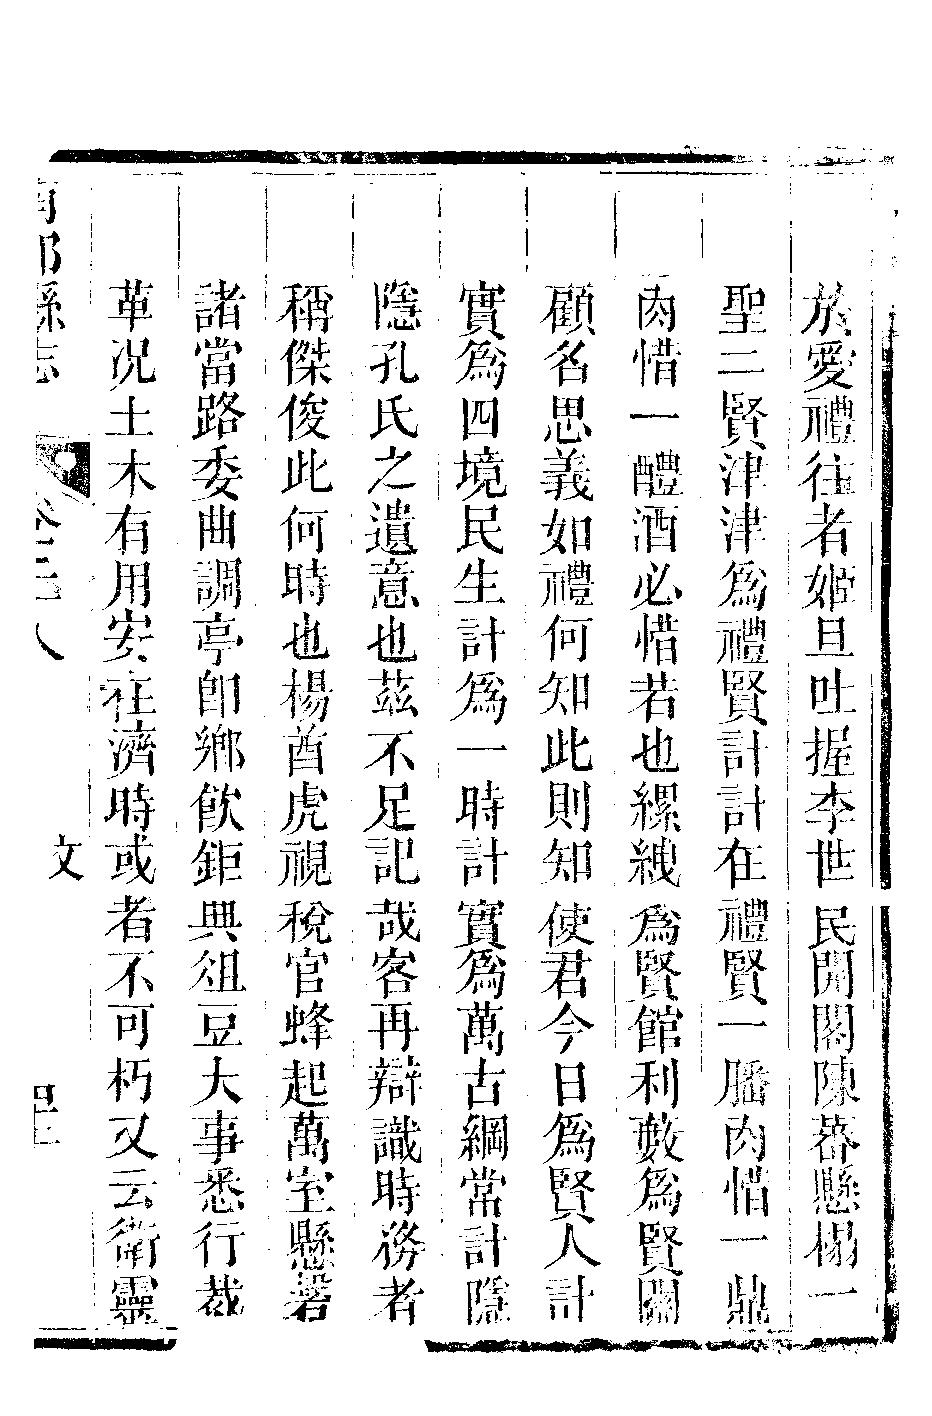 於愛禮往者姬旦吐握李世民開閣陳蕃懸榻一
聖二賢津津為禮賢計計在禮賢一膰肉惜一鼎
肉惜一醴酒必惜若也縲絏為賢館利藪為賢關
顧名思義如禮何知此則知使君今日為賢人計
實為四境民生計為一時計實為萬古綱常計隱
隱孔氏之遺意也茲不足記哉客再辯識時務者
稱傑俊此何時也楊酋虎視稅官蜂起萬室懸罄
諸當路委曲調亭即鄉飲鉅典俎豆大事悉行裁
革况土木有用安在濟時或者不可朽又云衛靈
南部縣志
卷二八
文